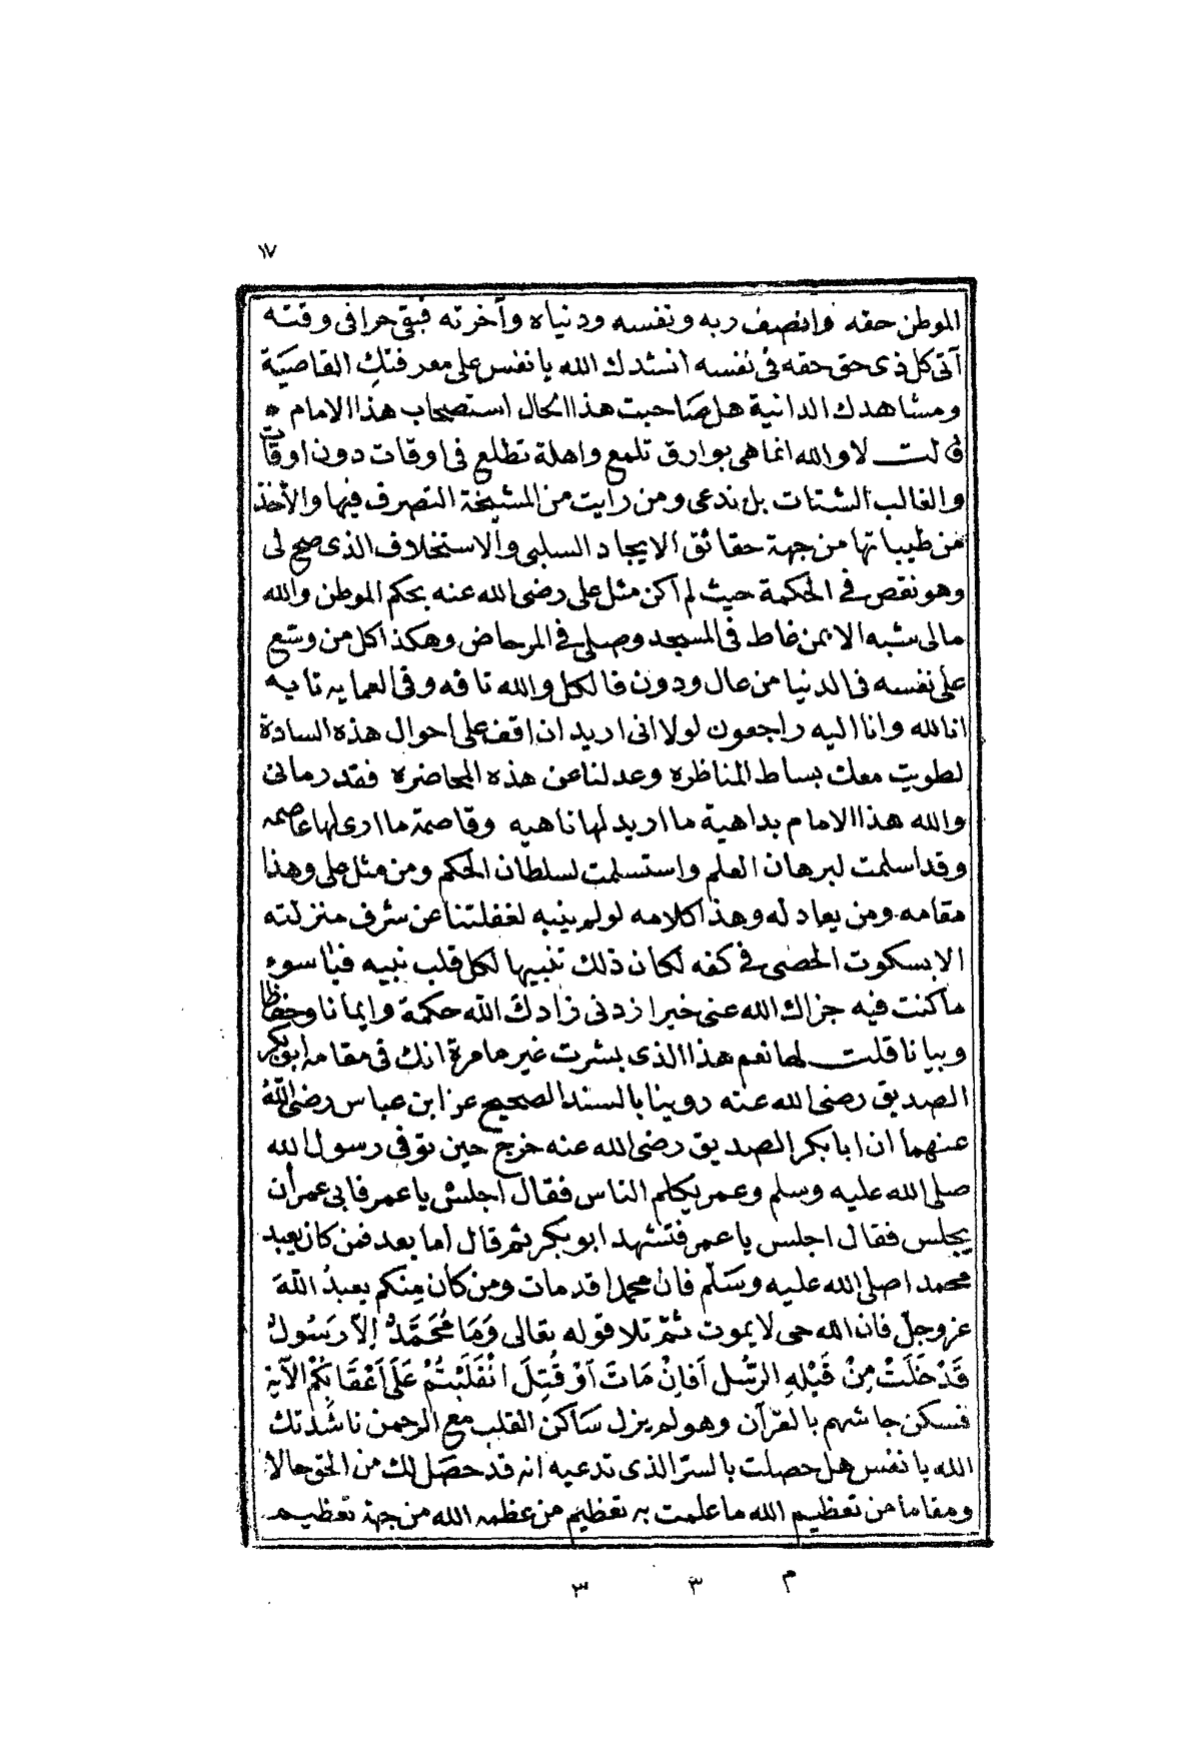 ١٧
الموطن حقه وانصف ربه ونفسه ودنياه وآخرته فبقى حرا فى وقته
آتى كل ذى حق حقه فى نفسه انشدك الله يا نفس على معرفتكِ القاصية
ومشاهدك الدانية هل صاحبت هذا الحال استصحاب هذا الامام *
قالت لا والله انما هى بوارق تلمع واهلة تطلع فى اوقات دون اوقات
والغالب الشتات بل ندعى ومن رأيت من المشيخة التصرف فيها والأخذ
من طيباتها من جهة حقائق الايجاد السلبى والاستخلاف الذى صح لى
وهو نقص فى الحكمة حيث لم اكن مثل على رضى الله عنه بحكم الموطن والله
مالى شبه الا بمن غاط فى المسجد وصلى فى المرحاض وهكذا كل من وسّع
على نفسه فى الدنيا من عال ودون فالكل والله تافه وفى العماية تايه
انا لله وانا اليه راجعون لولا انى اريد ان اقف على احوال هذه السادة
لطويت معك بساط المناظره وعدلنا عن هذه المحاضره فقد رمانى
والله هذا الامام بداهية ما اريد لها ناهيه وقاصمة ما ارى لها عاصمه
وقد اسلمت لبرهان العلم واستسلمت لسلطان الحكم ومن مثل على وهذا
مقامه ومن يعادله وهذا كلامه لو لم ينبه لغفلتنا عن شرف منزلته
الا بسكوت الحصى فى كفه لكان ذلك تنبيها لكل قلب نبيه فيا سوء
ما كنت فيه جزاك الله عنى خيرا زدنى زادك الله حكمة وايمانا وحفظا
وبيانا قلت لها نعم هذا الذى بشرت غير ما مرة انك فى مقامه ابو بكر
الصديق رضى الله عنه روينا بالسند الصحيح عن ابن عباس رضى اللّهُ
عنهما ان ابا بكر الصديق رضى الله عنه خرج حين توفى رسول الله
صلى الله عليه وسلم وعمر يكلم الناس فقال اجلس يا عمر فابى عمر أن
يجلس فقال اجلس يا عمر فتشهد ابو بكر ثم قال اما بعد فمن كان يعبد
محمدا صلى الله عليه وسَلّم فان محمدا قد مات ومن كان مِنكم يعبدُ اللّهَ
عز وجلّ فان الله حى لا يموت ثمّ تلا قوله تعالى وَمَا مُحَمَّدٌ إلاّ رَسُولٌ
قَدْ خَلَتْ مِنْ قَبْلِهِ الرسُّل اَفاِنْ مَاتَ اَوْ قُتِلَ انْقَلَبْتُمْ عَلَى اَعْقَابِكُمْ الآيَة
فسكن جاشهم بالقرآن وهو لم يزل سَاكن القلب مع الرحمن ناشدتك
الله يا نفس هل حصلت بالسرّ الذى تدعيه انه قد حصَل لك من الحق حالا
ومقاما من تعظيم الله ما علمت به تعظيم من عظمه الله من جهة تعظيم
م ٣ ٣